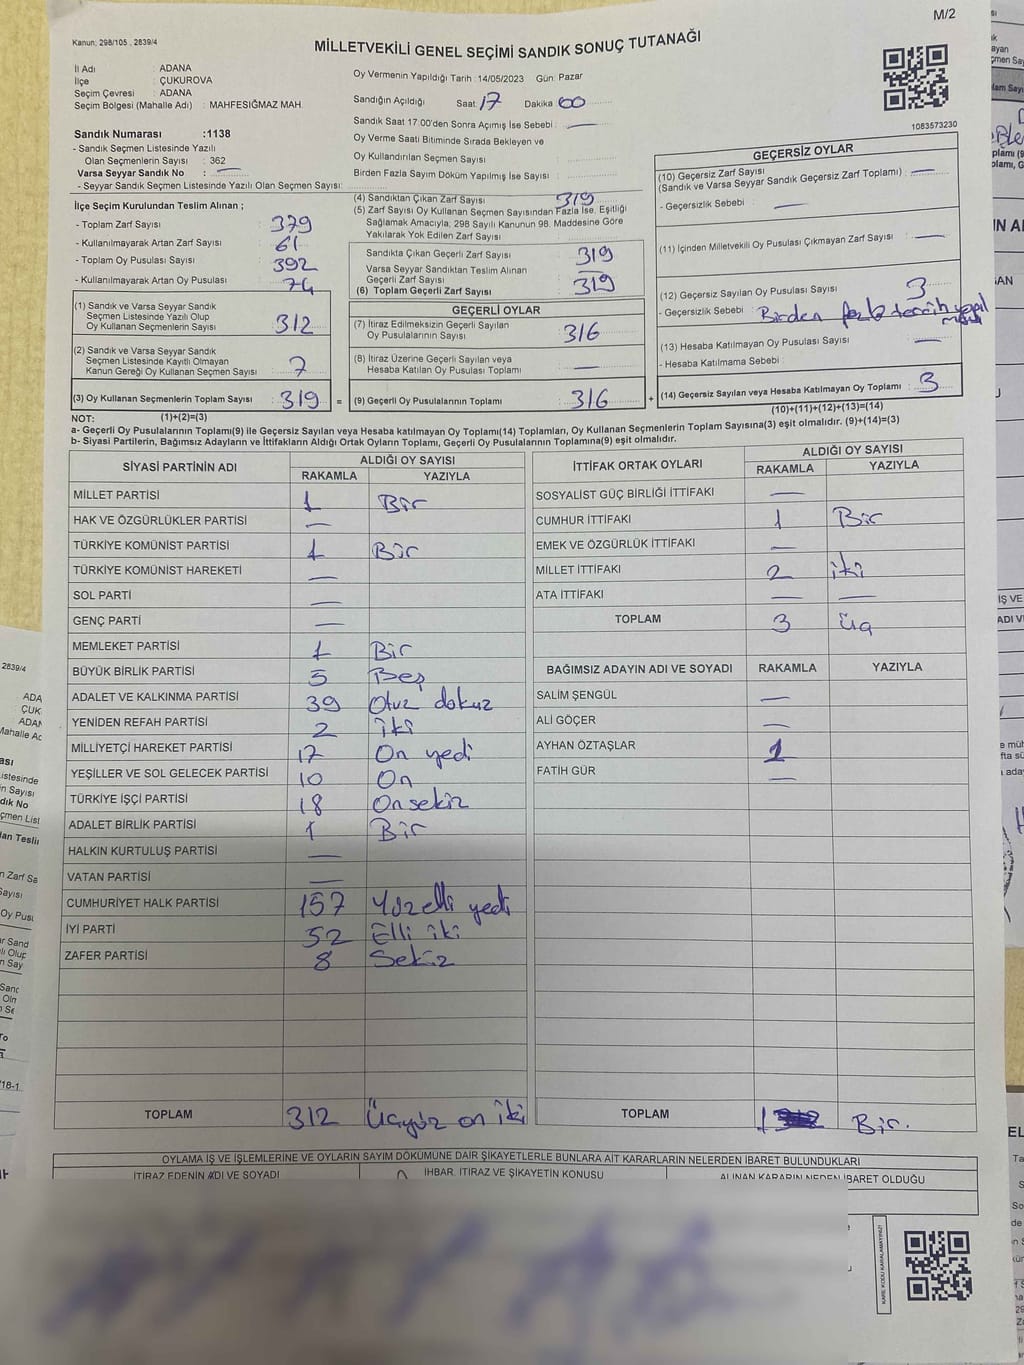 M/2
Kanun: 298/105 , 2839/4
MİLLETVEKİLİ GENEL SEÇİMİ SANDIK SONUÇ TUTANAĞI
İl Adı : ADANA
İlçe : ÇUKUROVA
Seçim Çevresi : ADANA
Seçim Bölgesi (Mahalle Adı) : MAHFESIĞMAZ MAH.
Oy Vermenin Yapıldığı Tarih : 14/05/2023 Gün: Pazar
Sandığın Açıldığı Saat 17 Dakika 00
Sandık Saat 17.00'den Sonra Açımış İse Sebebi : —
Oy Verme Saati Bitiminde Sırada Bekleyen ve
Oy Kullandırılan Seçmen Sayısı :
Birden Fazla Sayım Döküm Yapılmış İse Sayısı :
1083573230
Sandık Numarası :1138
- Sandık Seçmen Listesinde Yazılı
Olan Seçmenlerin Sayısı : 362
Varsa Seyyar Sandık No : —
- Seyyar Sandık Seçmen Listesinde Yazılı Olan Seçmen Sayısı:
İlçe Seçim Kurulundan Teslim Alınan ;
- Toplam Zarf Sayısı : 379
- Kullanılmayarak Artan Zarf Sayısı : 61
- Toplam Oy Pusulası Sayısı : 392
- Kullanılmayarak Artan Oy Pusulası : 74
(1) Sandık ve Varsa Seyyar Sandık
Seçmen Listesinde Yazılı Olup
Oy Kullanan Seçmenlerin Sayısı : 312
(2) Sandık ve Varsa Seyyar Sandık
Seçmen Listesinde Kayıtlı Olmayan
Kanun Gereği Oy Kullanan Seçmen Sayısı : 7
(3) Oy Kullanan Seçmenlerin Toplam Sayısı : 319 =
(1)+(2)=(3)
(4) Sandıktan Çıkan Zarf Sayısı : 319
(5) Zarf Sayısı Oy Kullanan Seçmen Sayısından Fazla İse, Eşitliği
Sağlamak Amacıyla, 298 Sayılı Kanunun 98. Maddesine Göre
Yakılarak Yok Edilen Zarf Sayısı :
Sandıkta Çıkan Geçerli Zarf Sayısı : 319
Varsa Seyyar Sandıktan Teslim Alınan
Geçerli Zarf Sayısı : —
(6) Toplam Geçerli Zarf Sayısı : 319
GEÇERLİ OYLAR
(7) İtiraz Edilmeksizin Geçerli Sayılan
Oy Pusulalarının Sayısı : 316
(8) İtiraz Üzerine Geçerli Sayılan veya
Hesaba Katılan Oy Pusulası Toplamı : —
(9) Geçerli Oy Pusulalarının Toplamı : 316 +
GEÇERSİZ OYLAR
(10) Geçersiz Zarf Sayısı
(Sandık ve Varsa Seyyar Sandık Geçersiz Zarf Toplamı) : —
- Geçersizlik Sebebi : —
(11) İçinden Milletvekili Oy Pusulası Çıkmayan Zarf Sayısı : —
(12) Geçersiz Sayılan Oy Pusulası Sayısı : 3
- Geçersizlik Sebebi : Birden fazla tercih
(13) Hesaba Katılmayan Oy Pusulası Sayısı : —
- Hesaba Katılmama Sebebi :
(14) Geçersiz Sayılan veya Hesaba Katılmayan Oy Toplamı : 3
(10)+(11)+(12)+(13)=(14)
NOT:
a- Geçerli Oy Pusulalarının Toplamı(9) ile Geçersiz Sayılan veya Hesaba katılmayan Oy Toplamı(14) Toplamları, Oy Kullanan Seçmenlerin Toplam Sayısına(3) eşit olmalıdır. (9)+(14)=(3)
b- Siyasi Partilerin, Bağımsız Adayların ve İttifakların Aldığı Ortak Oyların Toplamı, Geçerli Oy Pusulalarının Toplamına(9) eşit olmalıdır.
SİYASİ PARTİNİN ADI ALDIĞI OY SAYISI
RAKAMLA YAZIYLA
MİLLET PARTİSİ 1 Bir
HAK VE ÖZGÜRLÜKLER PARTİSİ —
TÜRKİYE KOMÜNİST PARTİSİ 1 Bir
TÜRKİYE KOMÜNİST HAREKETİ —
SOL PARTİ —
GENÇ PARTİ —
MEMLEKET PARTİSİ 1 Bir
BÜYÜK BİRLİK PARTİSİ 5 Beş
ADALET VE KALKINMA PARTİSİ 39 Otuz dokuz
YENİDEN REFAH PARTİSİ 2 iki
MİLLİYETÇİ HAREKET PARTİSİ 17 On yedi
YEŞİLLER VE SOL GELECEK PARTİSİ 10 On
TÜRKİYE İŞÇİ PARTİSİ 18 Onsekiz
ADALET BİRLİK PARTİSİ 1 Bir
HALKIN KURTULUŞ PARTİSİ —
VATAN PARTİSİ —
CUMHURİYET HALK PARTİSİ 157 Yüzelli yedi
İYİ PARTİ 52 Elli iki
ZAFER PARTİSİ 8 Sekiz
TOPLAM 312 Üçyüz on iki
İTTİFAK ORTAK OYLARI ALDIĞI OY SAYISI
RAKAMLA YAZIYLA
SOSYALİST GÜÇ BİRLİĞİ İTTİFAKI —
CUMHUR İTTİFAKI 1 Bir
EMEK VE ÖZGÜRLÜK İTTİFAKI —
MİLLET İTTİFAKI 2 iki
ATA İTTİFAKI — —
TOPLAM 3 üç
BAĞIMSIZ ADAYIN ADI VE SOYADI RAKAMLA YAZIYLA
SALİM ŞENGÜL —
ALİ GÖÇER —
AYHAN ÖZTAŞLAR 1
FATİH GÜR —
TOPLAM 1 Bir.
OYLAMA İŞ VE İŞLEMLERİNE VE OYLARIN SAYIM DÖKÜMÜNE DAİR ŞİKAYETLERLE BUNLARA AİT KARARLARIN NELERDEN İBARET BULUNDUKLARI
İTİRAZ EDENİN ADI VE SOYADI İHBAR, İTİRAZ VE ŞİKAYETİN KONUSU ALINAN KARARIN NEDEN İBARET OLDUĞU
KARE KODU KARALAMAYINIZ!